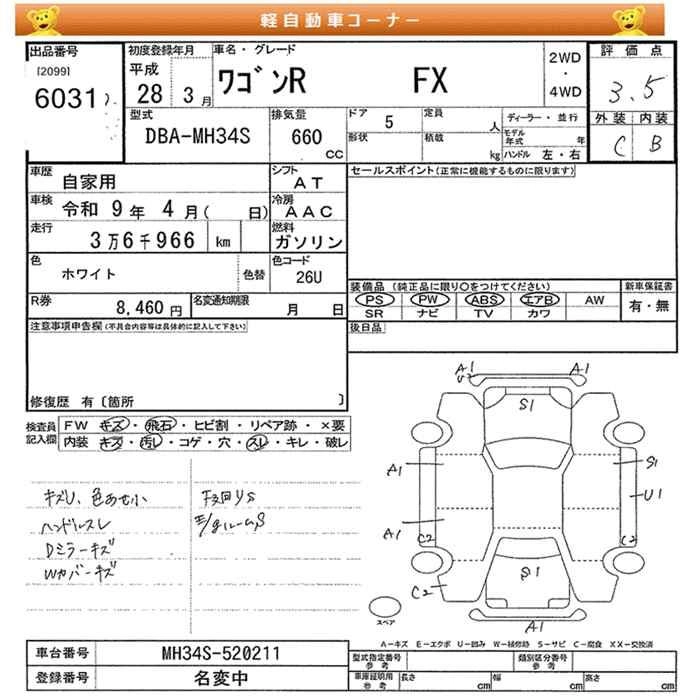 軽自動車コーナー
出品番号
[2099]
6031
初度登録年月
平成
28 3月
車名・グレード
ワゴンR FX
2WD
・
4WD
評価点
3.5
外装 内装
C B
型式
DBA-MH34S
排気量
660
CC
ドア 5
形状
定員 人
積載 kg
ディーラー・並行
モデル年式 年
ハンドル 左・右
車歴
自家用
シフト
AT
車検
令和 9年 4月( 日)
冷房
AAC
走行
3万6千966 km
燃料
ガソリン
色
ホワイト
色替
色コード
26U
R券
8,460円
名変通知期限
月 日
セールスポイント(正常に機能するものに限ります)
装備品 (純正品に限り○をつけてください)
PS PW ABS エアB AW
SR ナビ TV カワ
新車保証書
有・無
後日品
注意事項申告欄(不具合内容等は具体的に記入して下さい)
修復歴 有〔箇所 〕
検査員記入欄
FW キズ・飛石・ヒビ割・リペア跡・×要
内装 キズ・汚レ・コゲ・穴・スレ・キレ・破レ
キズU、色あせ小
ハンドルスレ
Dミラーキズ
Wカバーキズ
下回りS
A1 A1
U2
S1
A1 S1
U1
A1
C2 C2
C2
S1
A1
スペア
A-キズ E-エクボ U-凹み W-補修跡 S-サビ C-腐食 XX-交換済
車台番号 MH34S-520211
登録番号 名変中
型式指定番号 参考
類別区分番号 参考
車庫証明用 参考
長さ cm 幅 cm 高さ cm